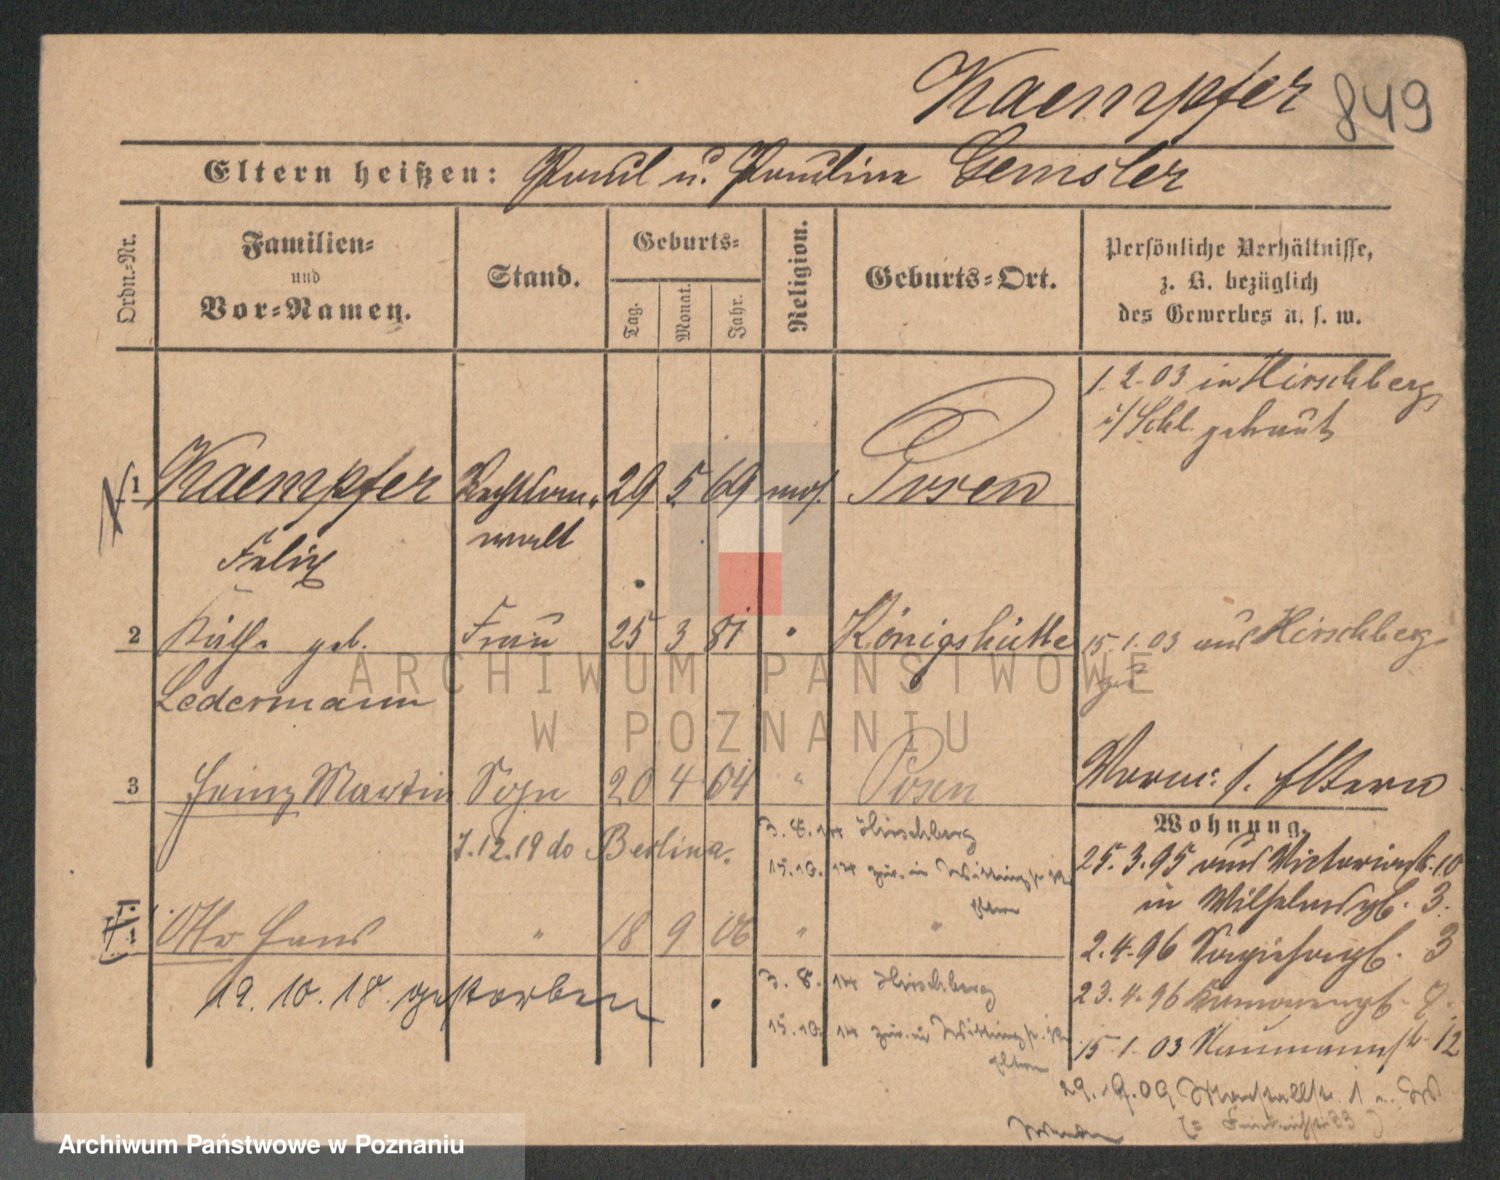 Kaempfer 849
Eltern heißen: Paul u. Pauline Gensler
Ordn.-Nr.
Familien-
und
Vor-Namen.
Stand.
Geburts-
Tag.
Monat.
Jahr.
Religion.
Geburts-Ort.
Persönliche Verhältnisse,
z. B. bezüglich
des Gewerbes u. s. w.
1. 2. 03 in Hirschberg
i/Schl. getraut
1 Kaempfer Rechtsan- 29 5 69 mos. Posen
walt
Felix
2 Käthe geb. Frau 25 3 81 " Königshütte 15. 1. 03 aus Hirschberg
Ledermann
3 Heinz Martin Sohn 20 4 04 " Posen
Verm: s. Eltern
Wohnung.
7.12.19 do Berlin a.
3. 8. 14 Hirschberg
15. 10. 14 zur. in
Eltern
25. 3. 95 aus Victoriastr. 10
in Wilhelmspl. 3.
4 Otto Hans " 18 9 06 " "
2. 4. 96 Sapiehapl. 3
19. 10. 18. gestorben
3. 8. 14 Hirschberg
15. 10. 14 zur. in
Eltern
23. 4. 96
15. 1. 03 Naumannstr. 12
29. 9. 09
ARCHIWUM PAŃSTWOWE
W POZNANIU
Archiwum Państwowe w Poznaniu